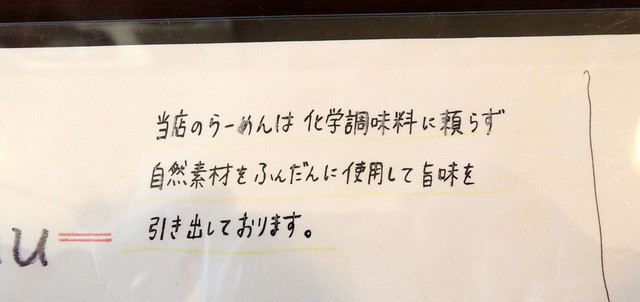 当店のらーめんは化学調味料に頼らず
自然素材をふんだんに使用して旨味を
引き出しております。
u